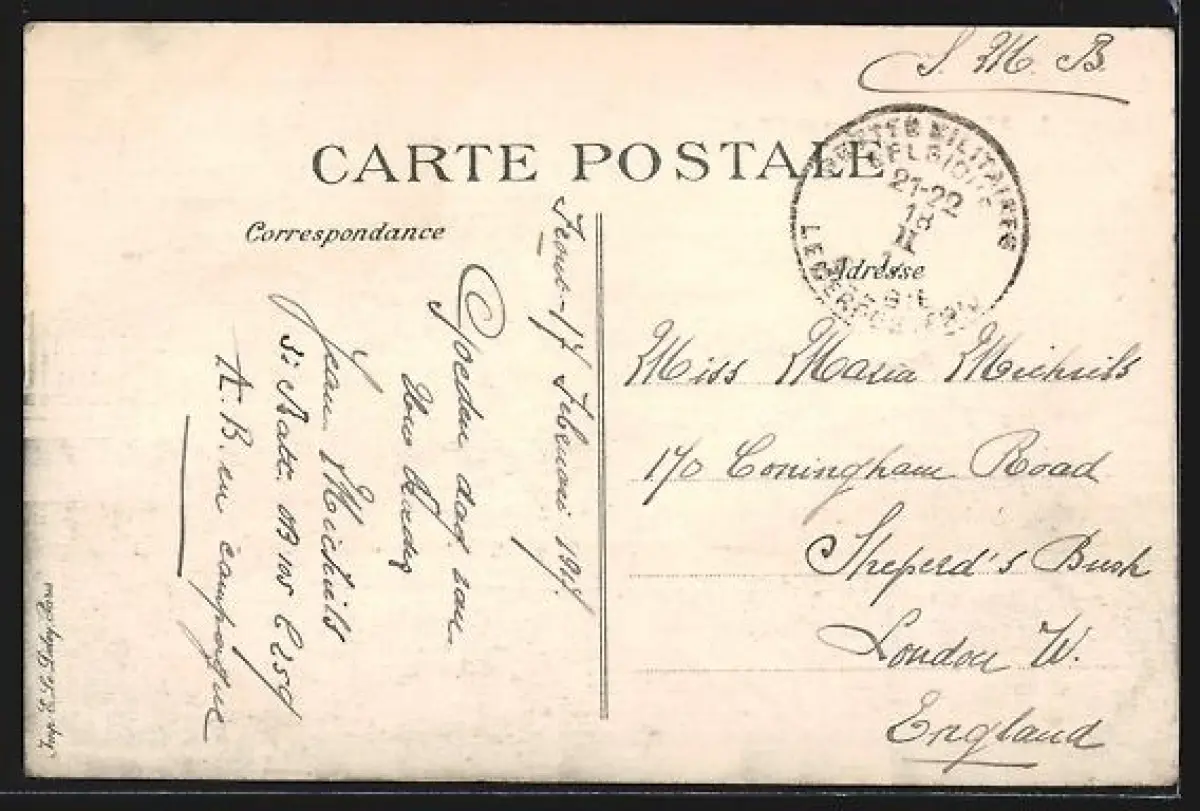 S. M. B.
CARTE POSTALE
POSTES MILITAIRES
BELGIQUE
21-22
18
II
LEGERPOSTERIJ
Correspondance
Adresse
17 Februari 1917.
Goeden dag van
Uw broeder
Jean Michiels
Batt.
A. B. en campagne
Miss Maria Michiels
170 Coningham Road
Sheperd's Bush
London W.
England